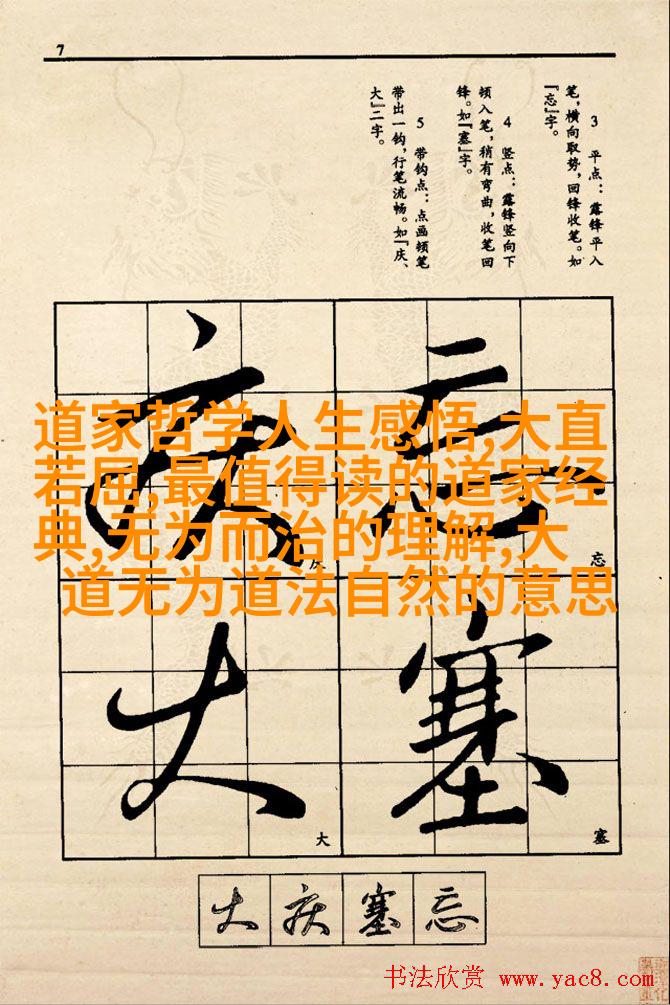 7
3 平点：露锋平入
笔，横向取势，回锋收笔。如
『忘』字。
4 竖点：露锋竖向下
顿入笔，稍有弯曲，收笔回
锋。如『塞』字。
5 带钩点：点画顿笔
带出一钩，行笔流畅。如『庆、
大』二字。
忘
忘
塞
塞
庆
庆
大
大
道家哲学人生感悟,大直
若屈,最值得读的道家经
典,无为而治的理解,大
道无为道法自然的意思
大庆塞忘
书法欣赏 www.yac8.com